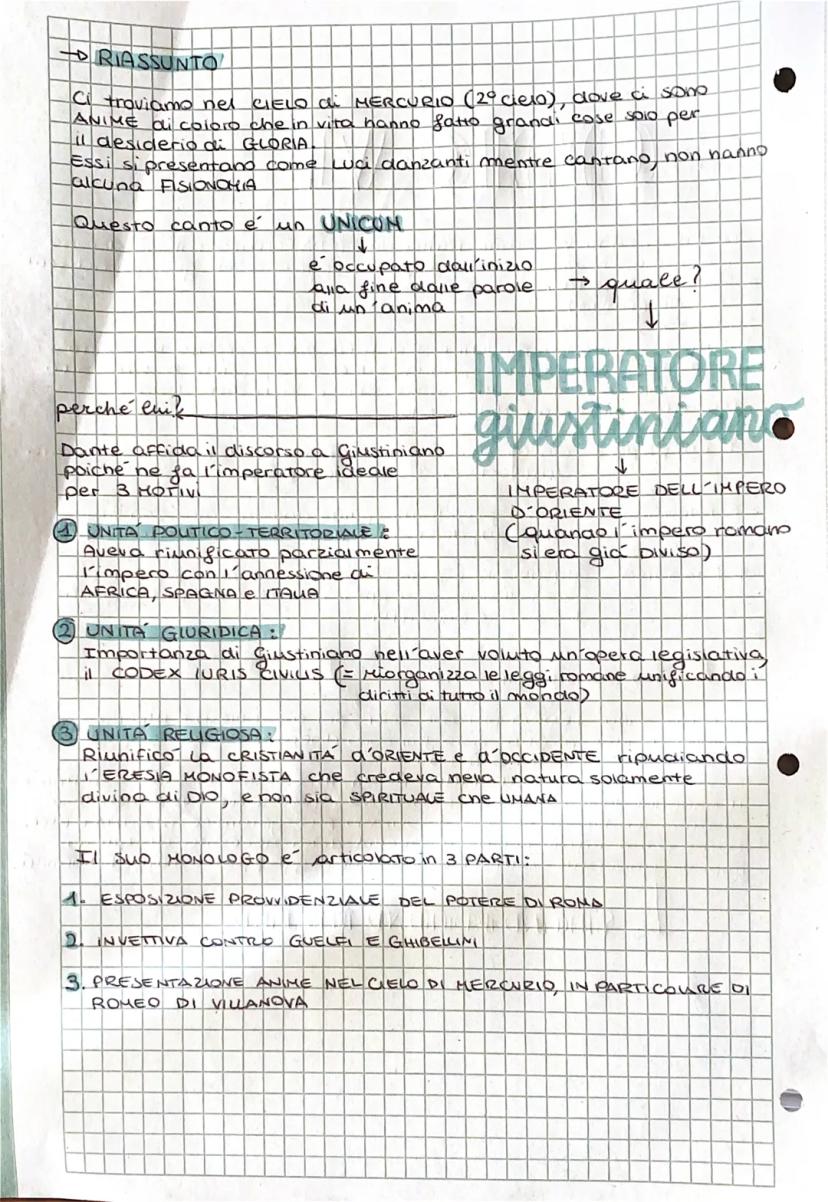 → RIASSUNTO
Ci troviamo nel CIELO di MERCURIO (2° cielo), dove ci sono
ANIME di coloro che in vita hanno fatto grandi cose solo per
il desiderio di GLORIA.
Essi si presentano come luci danzanti mentre cantano, non hanno
alcuna FISIONOMIA
Questo canto é un UNICUM
↓
é occupato dall'inizio
alla fine dalle parole
di un'anima
→ quale?
↓
IMPERATORE
giustiniano
↓
IMPERATORE DELL'IMPERO
D'ORIENTE
(quando l'impero romano
si era giá DIVISO)
perché lui?
Dante affida il discorso a Giustiniano
poiché ne fa l'imperatore ideale
per 3 MOTIVI
1 UNITÁ POLITICO-TERRITORIALE:
Aveva riunificato parzialmente
l'impero con l'annessione di
AFRICA, SPAGNA e ITALIA
2 UNITÁ GIURIDICA:
Importanza di Giustiniano nell'aver voluto un'opera legislativa,
il CODEX IURIS CIVILIS (= riorganizza le leggi romane unificando i
diritti di tutto il mondo)
3 UNITÁ RELIGIOSA:
Riunificó la CRISTIANITÁ d'ORIENTE e d'OCCIDENTE ripudiando
l'ERESIA MONOFISTA che credeva nella natura solamente
divina di DIO, e non sia SPIRITUALE che UMANA
Il suo MONOLOGO é articolato in 3 PARTI:
1. ESPOSIZIONE PROVVIDENZIALE DEL POTERE DI ROMA
2. INVETTIVA CONTRO GUELFI E GHIBELLINI
3. PRESENTAZIONE ANIME NEL CIELO DI MERCURIO, IN PARTICOLARE DI
ROMEO DI VILLANOVA